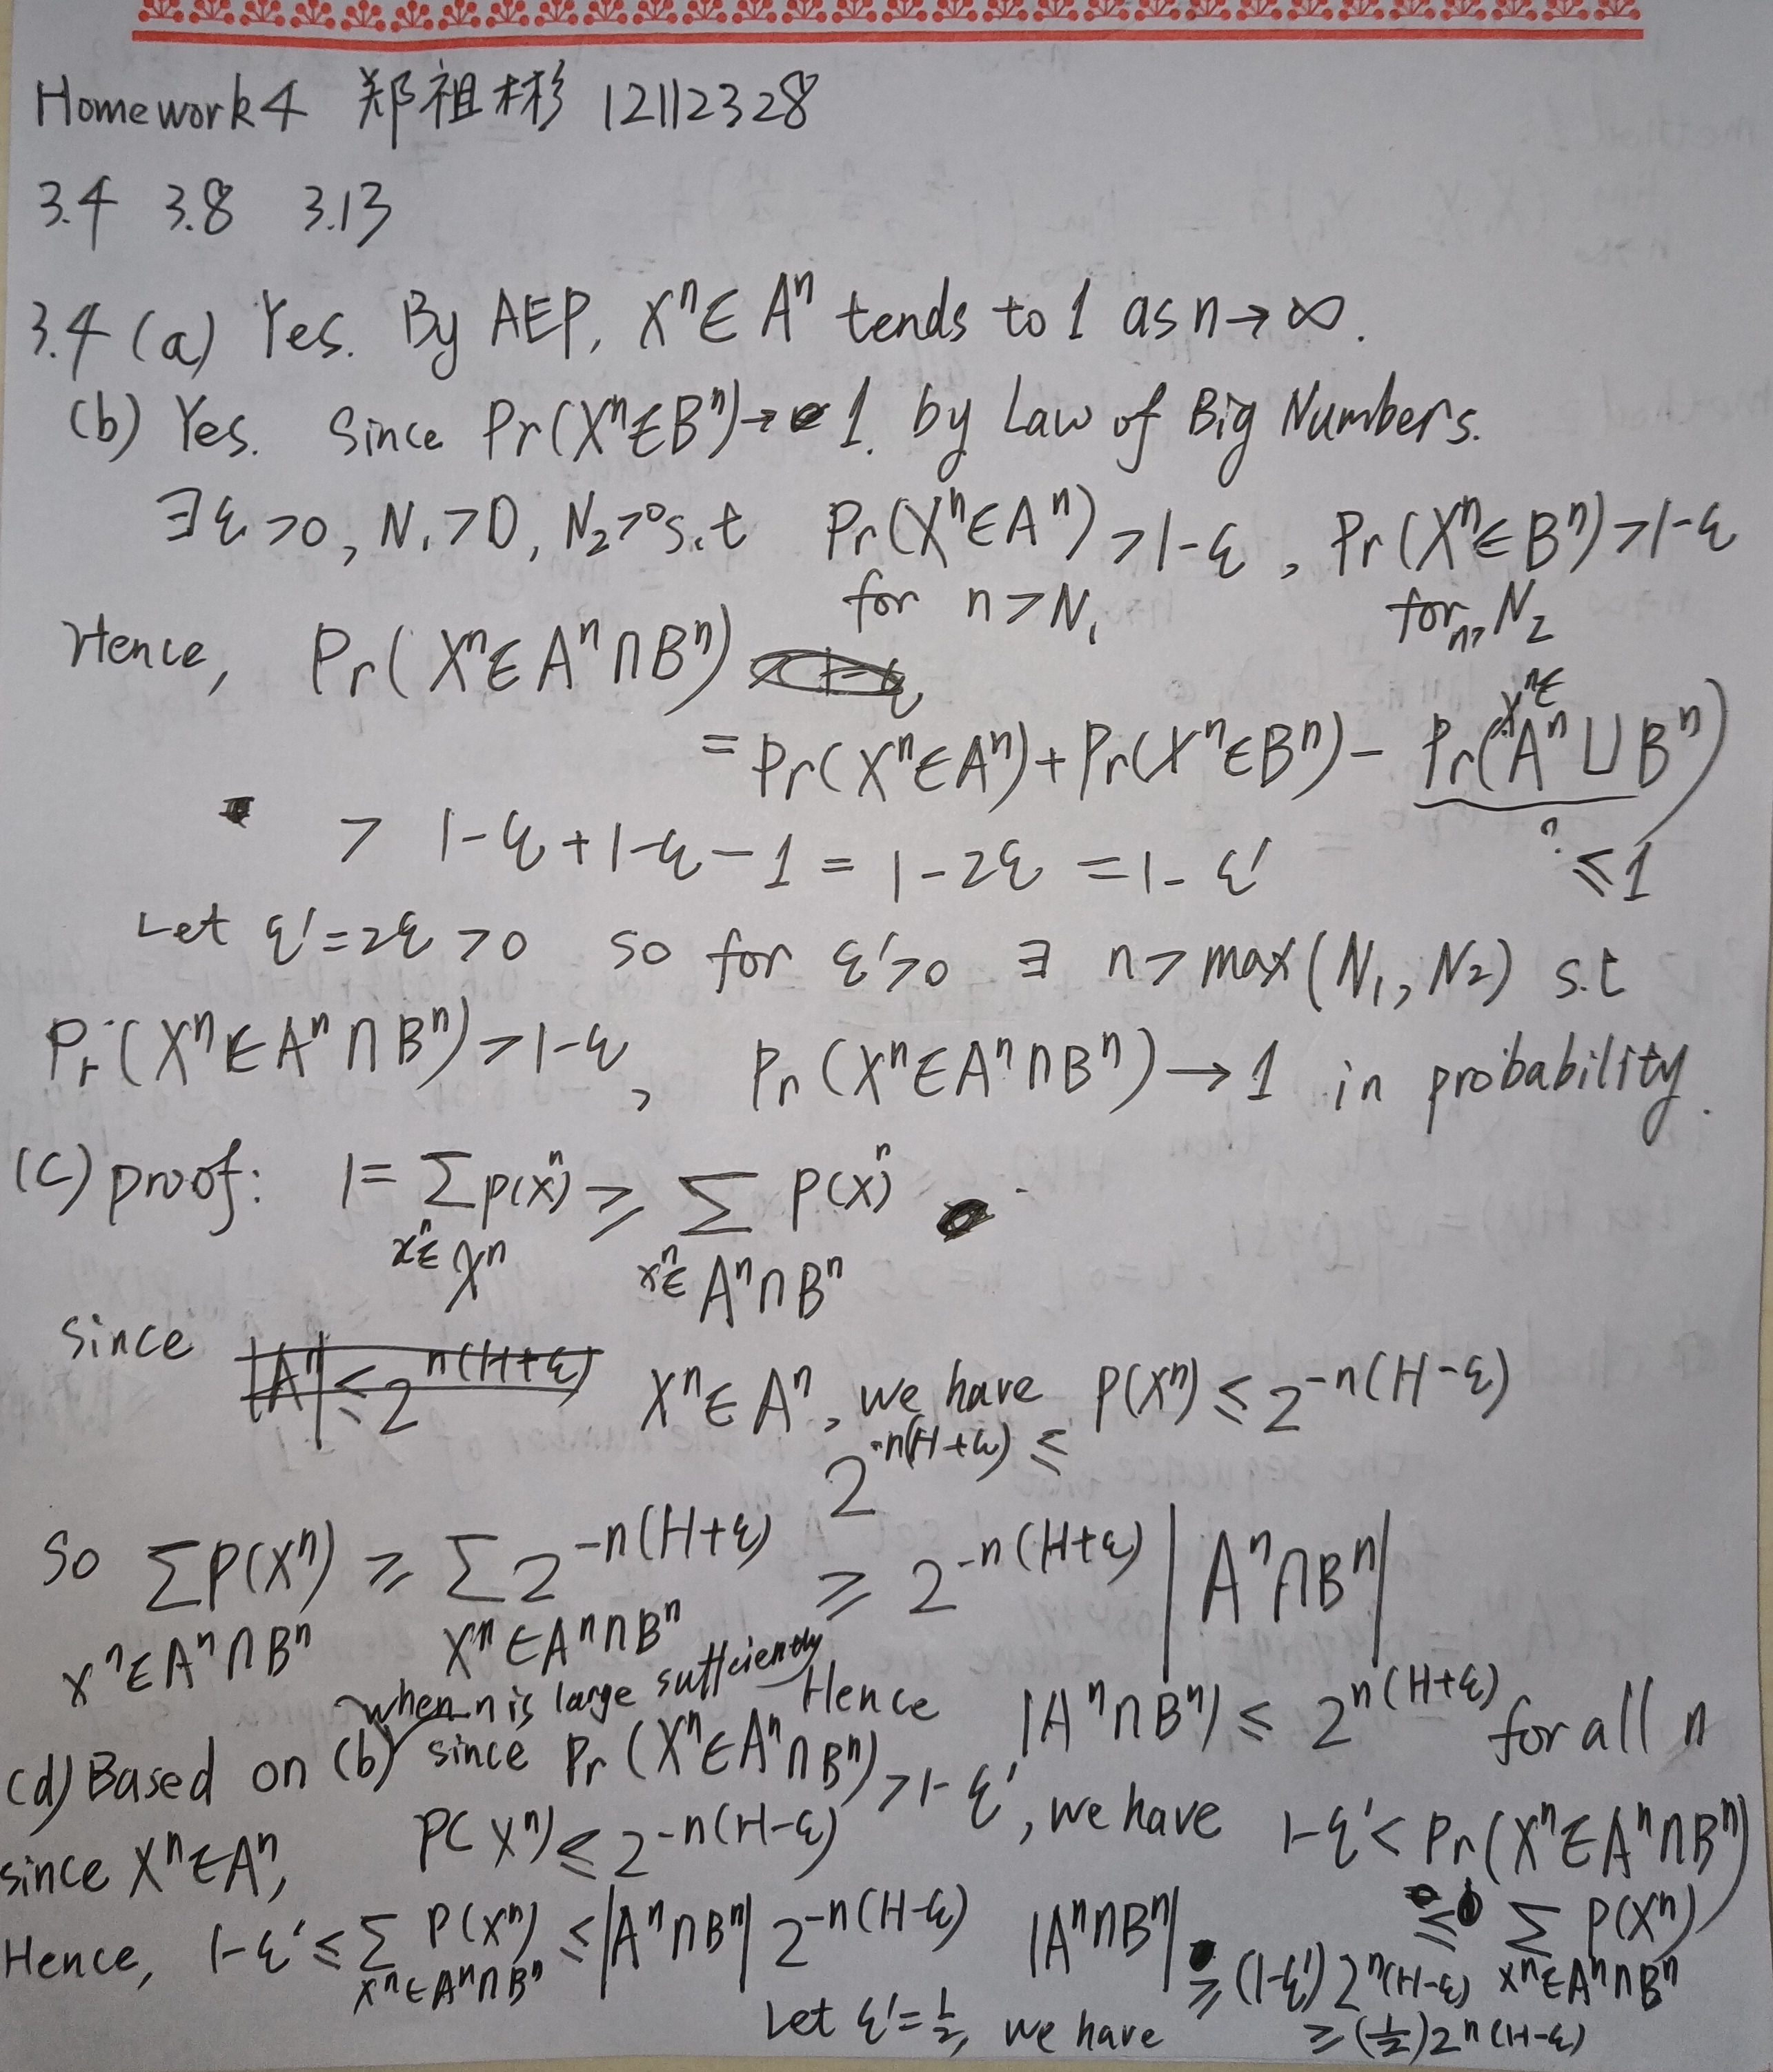 Homework 4 郑祖彬 12112328
3.4 3.8 3.13
3.4 (a) Yes. By AEP, Xⁿ∈Aⁿ tends to 1 as n→∞.
(b) Yes. Since Pr(Xⁿ∈Bⁿ)→1. by Law of Big Numbers.
∃ε>0, N₁>0, N₂>0 s.t Pr(Xⁿ∈Aⁿ)>1-ε, Pr(Xⁿ∈Bⁿ)>1-ε
for n>N₁ for n> N₂
Hence, Pr(Xⁿ∈Aⁿ∩Bⁿ)
=Pr(Xⁿ∈Aⁿ)+Pr(Xⁿ∈Bⁿ)-Pr(Xⁿ∈Aⁿ∪Bⁿ)
> 1-ε+1-ε-1=1-2ε=1-ε' ≤1
Let ε'=2ε>0 so for ε'>0 ∃ n>max(N₁,N₂) s.t
Pr(Xⁿ∈Aⁿ∩Bⁿ)>1-ε, Pr(Xⁿ∈Aⁿ∩Bⁿ)→1 in probability.
(c) proof: 1=∑p(xⁿ)≥∑p(xⁿ)
xⁿ∈Xⁿ xⁿ∈Aⁿ∩Bⁿ
since |Aⁿ|≤2^n(H+ε) Xⁿ∈Aⁿ, we have P(Xⁿ)≤2^-n(H-ε)
2^-n(H+ε)≤
So ∑P(Xⁿ)≥∑2^-n(H+ε)≥2^-n(H+ε)|Aⁿ∩Bⁿ|
Xⁿ∈Aⁿ∩Bⁿ Xⁿ∈Aⁿ∩Bⁿ
Hence |Aⁿ∩Bⁿ|≤2^n(H+ε) for all n
when n is large sufficiently
(d) Based on (b) since Pr(Xⁿ∈Aⁿ∩Bⁿ)>1-ε', we have 1-ε'<Pr(Xⁿ∈Aⁿ∩Bⁿ)
≤∑P(Xⁿ)
Xⁿ∈Aⁿ∩Bⁿ
since Xⁿ∈Aⁿ, P(Xⁿ)≤2^-n(H-ε)
Hence, 1-ε'≤∑P(Xⁿ)≤|Aⁿ∩Bⁿ|2^-n(H-ε) |Aⁿ∩Bⁿ|≥(1-ε')2^n(H-ε)
Xⁿ∈Aⁿ∩Bⁿ
Let ε'=1/2, we have ≥(1/2)2^n(H-ε)